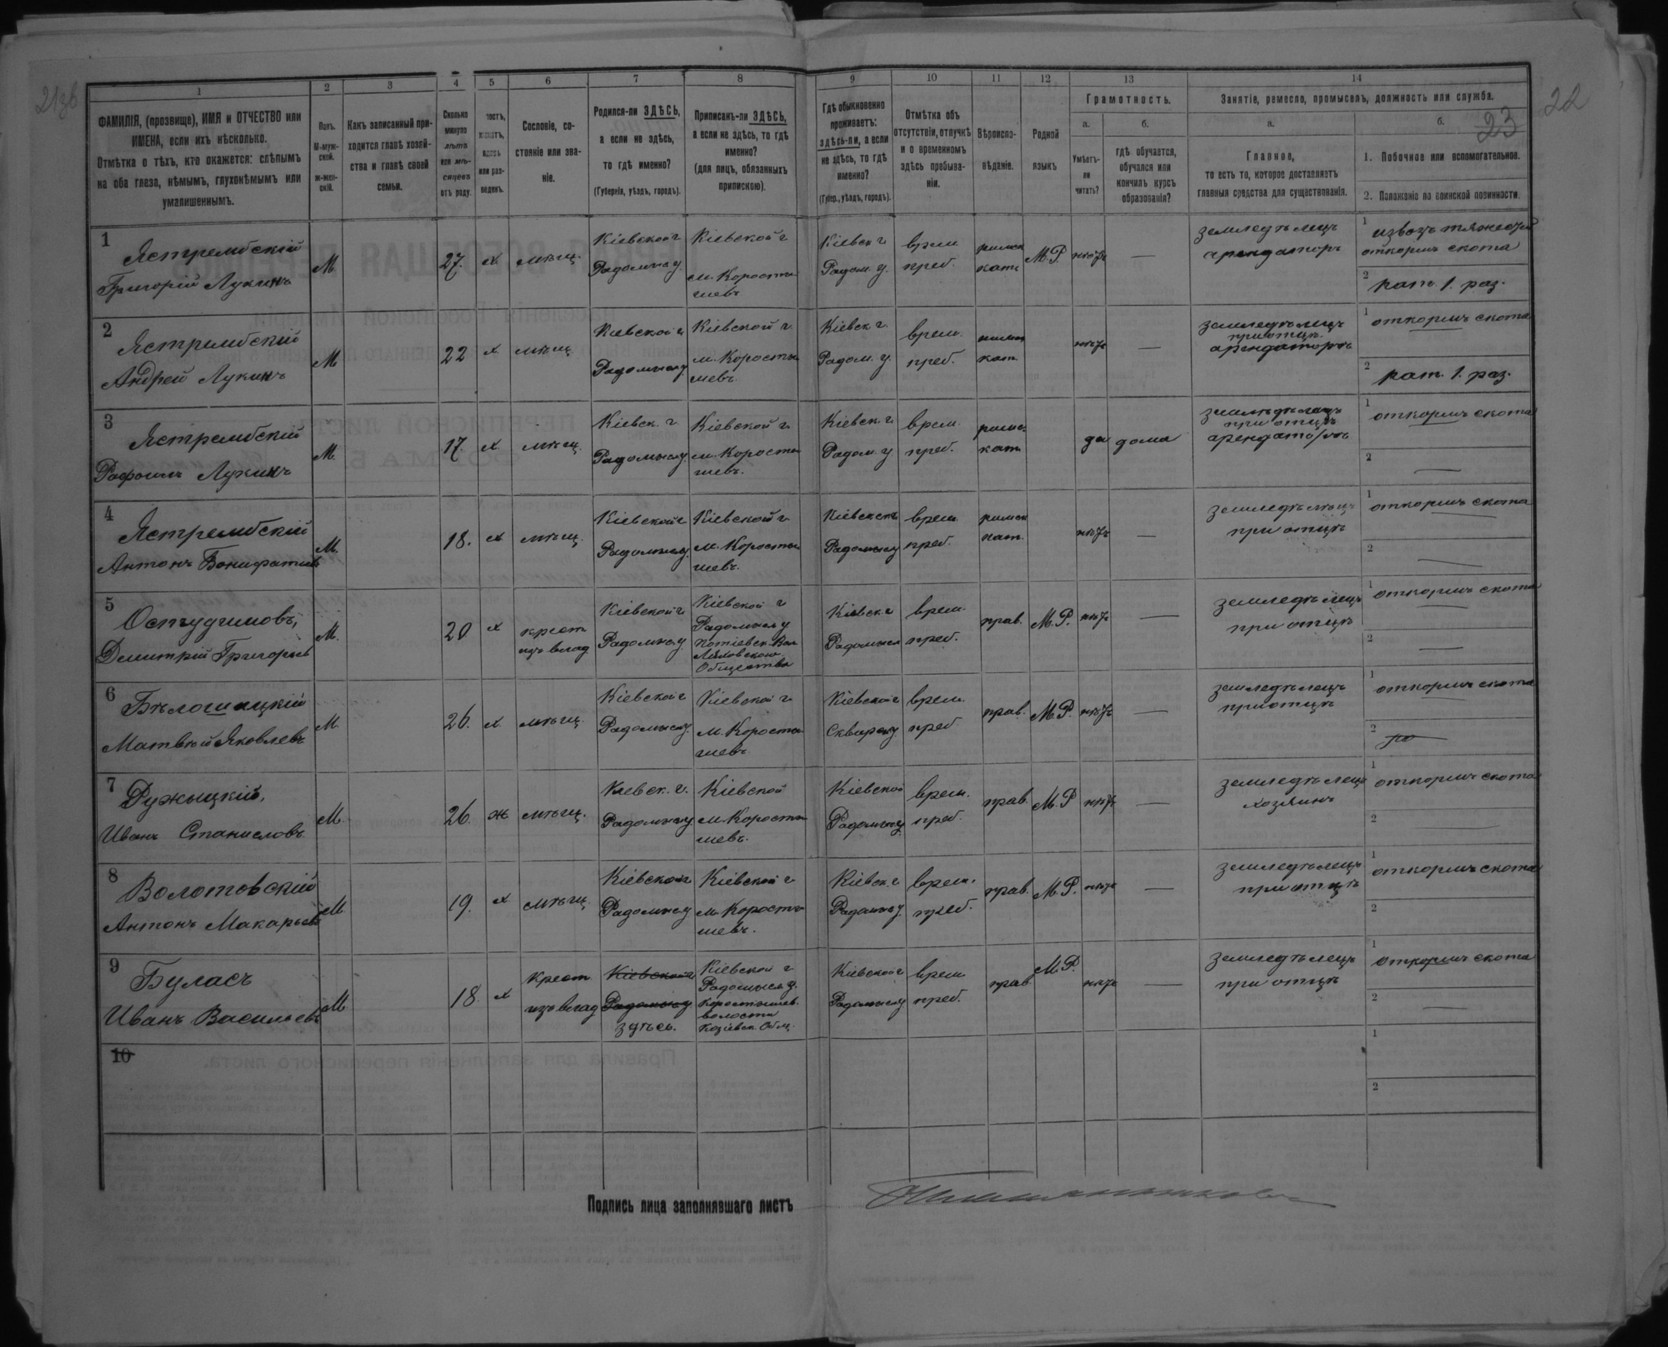 21об
22
23
1
2
3
4
5
6
7
8
9
10
11
12
13
14
ФАМИЛІЯ, (прозвище), ИМЯ и ОТЧЕСТВО или
ИМЕНА, если ихъ нѣсколько.
Отмѣтка о тѣхъ, кто окажется: слѣпымъ
на оба глаза, нѣмымъ, глухонѣмымъ или
умалишеннымъ.
Полъ.
М-муж-
ской.
Ж-жен-
скій.
Какъ записанный при-
ходится главѣ хозяй-
ства и главѣ своей
семьи.
Сколько
минуло
лѣтъ
или мѣ-
сяцевъ
отъ роду.
или раз-
веденъ.
Сословіе, со-
стояніе или зва-
ніе.
Родился-ли ЗДѢСЬ,
а если не здѣсь,
то гдѣ именно?
(Губернія, уѣздъ, городъ).
Приписанъ-ли ЗДѢСЬ,
а если не здѣсь, то гдѣ
именно?
(для лицъ, обязанныхъ
припискою).
Гдѣ обыкновенно
проживаетъ:
здѣсь-ли, а если
не здѣсь, то гдѣ
именно?
(Губер., уѣздъ, городъ).
Отмѣтка объ
отсутствіи, отлучкѣ
и о временномъ
здѣсь пребыва-
ніи.
Вѣроиспо-
вѣданіе.
Родной
языкъ
Грамотность.
а.
Умѣетъ-
ли
читать?
б.
гдѣ обучается,
обучался или
кончилъ курсъ
образованія?
Занятіе, ремесло, промыселъ, должность или служба.
а.
Главное,
то есть то, которое доставляетъ
главныя средства для существованія.
б.
1. Побочное или вспомогательное.
2. Положеніе по воинской повинности.
1
Ястрембскій
Григорій Лукинъ
М
27.
х
мѣщ.
Кіевской г
Радомыс у
Кіевской г
м. Коросты
шевъ
Кіевск г
Радом. у.
врем
преб.
римск
кат.
М.Р.
нѣтъ
—
земледѣлецъ
арендаторъ
1
откормъ скота
2
рат. 1. раз.
2
Ястрембскій
Андрей Лукинъ
М
22
х
мѣщ.
Кіевской г
Радомыс у
Кіевской г
м. Коросты
шевъ.
Кіевск г
Радом. у
врем.
преб.
римск
кат.
нѣтъ
—
земледѣлецъ
при отцѣ
1
откормъ скота
2
рат. 1. раз.
3
Ястрембскій
Лукинъ
М
17
х
мѣщ.
Кіевск. г
Радомыс у
Кіевской г
м. Коросты
шевъ.
Кіевск г
Радом. у
врем.
преб.
римск
кат
да
дома
земледѣлецъ
при отцѣ
1
откормъ скота
2
—
4
Ястрембскій
Антонъ Бонифатіевъ
М
18.
х
мѣщ
Кіевской г
Радомыс у
Кіевской г
м. Коросты
шевъ.
врем
преб.
римск
кат.
нѣтъ
—
земледѣлецъ
при отцѣ
1
откормъ скота
2
—
5
Димитрій Григорьев
М.
20
х
крест
изъ влад
Кіевской г
Радомыс у
Кіевской г
Радомыс у
Общества
Кіевск г
врем.
преб.
прав.
М.Р.
нѣтъ
—
земледѣлецъ
при отцѣ
1
откормъ скота
2
—
6
Матвѣй Яковлевъ
М
26.
х
мѣщ.
Кіевской г
Радомыс у.
Кіевской г
м. Коросты
шевъ.
Кіевской г
Сквирск у
врем.
преб
прав.
М.Р.
нѣтъ
—
земледѣлецъ
при отцѣ
1
откормъ скота
2
7
Ружыцкій,
Иванъ Станиславъ
М
26.
ж
мѣщ.
Кіевск. г.
Радомыс у
Кіевской
м. Коросты
шевъ.
Кіевской
Радомыс у
врем.
преб.
прав.
М.Р
нѣтъ
—
земледѣлецъ
хозяинъ
1
откормъ скота
2
—
8
Волотовскій
Антонъ Макарьевъ
М
19.
х
мѣщ
Кіевской г
Радомыс у
Кіевской г
м. Коросты
шевъ.
Кіевск г
Радомыс у
врем.
преб.
прав.
М.Р.
нѣтъ
—
земледѣлецъ
при отцѣ
1
откормъ скота
2
9
Буласъ
Иванъ Васильевъ
М
18.
х
крест
изъ влад
Кіевской г
Радомыс у
здѣсь.
Кіевской г
Радомысл у.
Коростышев.
волости
Кіевской г
Радомыс у
врем
преб.
прав
М.Р.
нѣтъ
—
земледѣлецъ
при отцѣ
1
откормъ скота
2
—
10
1
2
Подпись лица заполнявшаго листъ